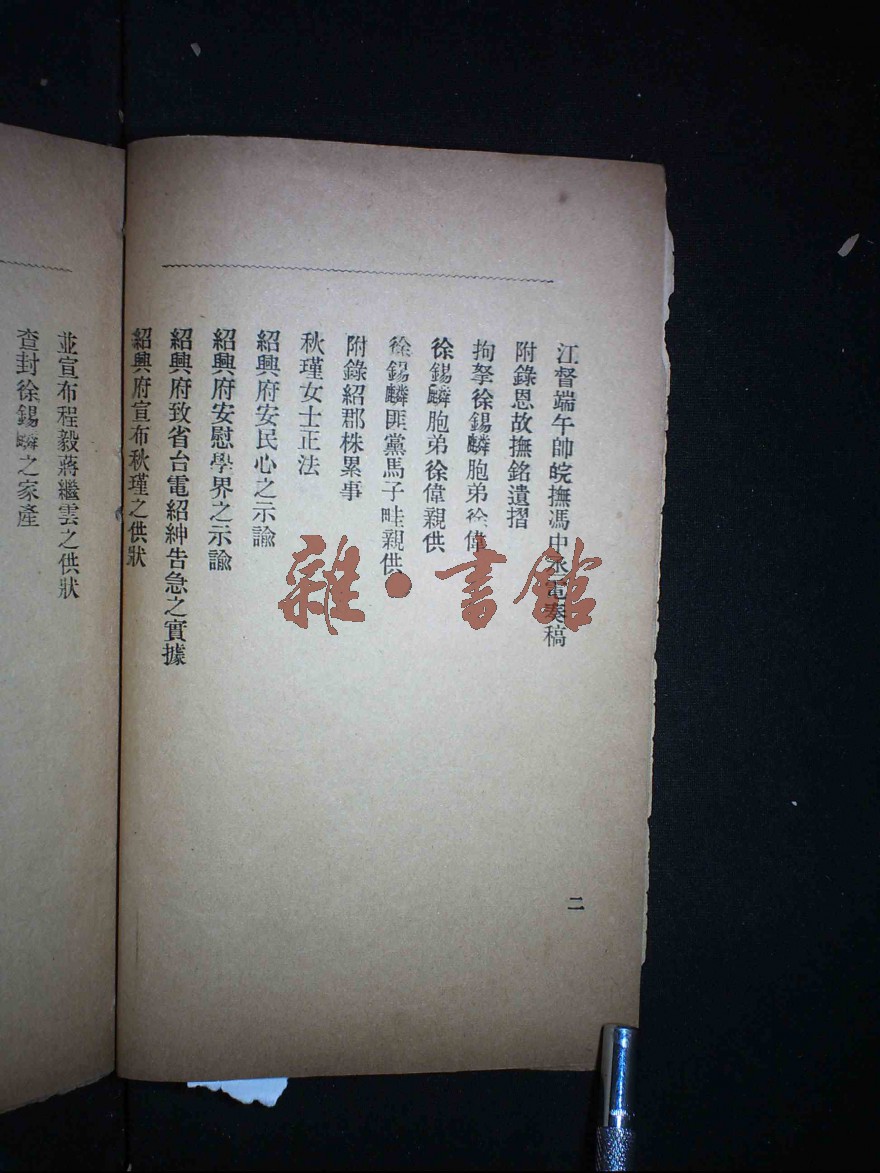 江督端午帥皖撫馮中丞電奏稿
附錄恩故撫銘遺摺
拘拏徐錫麟胞弟徐偉
徐錫麟胞弟徐偉親供
徐錫麟匪黨馬子畦親供
附錄紹郡株累事
秋瑾女士正法
紹興府安民心之示諭
紹興府安慰學界之示諭
紹興府致省台電紹紳告急之實據
紹興府宣布秋瑾之供狀
並宣布程毅蔣繼雲之供狀
查封徐錫麟之家產
二
雜·書館